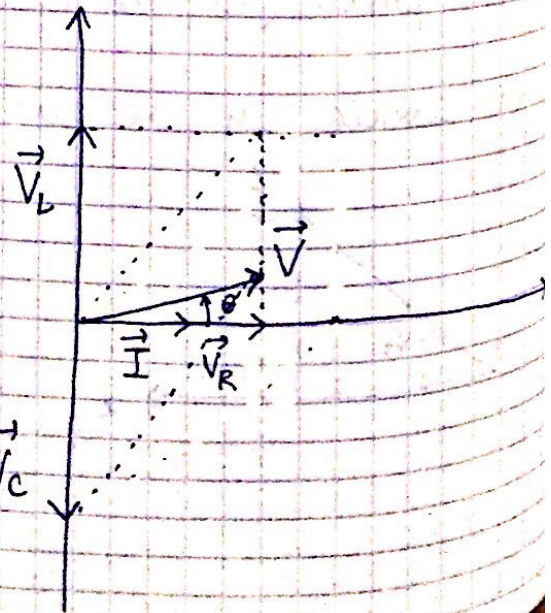 V⃗_L
V⃗
θ
I⃗
V⃗_R
V⃗_C